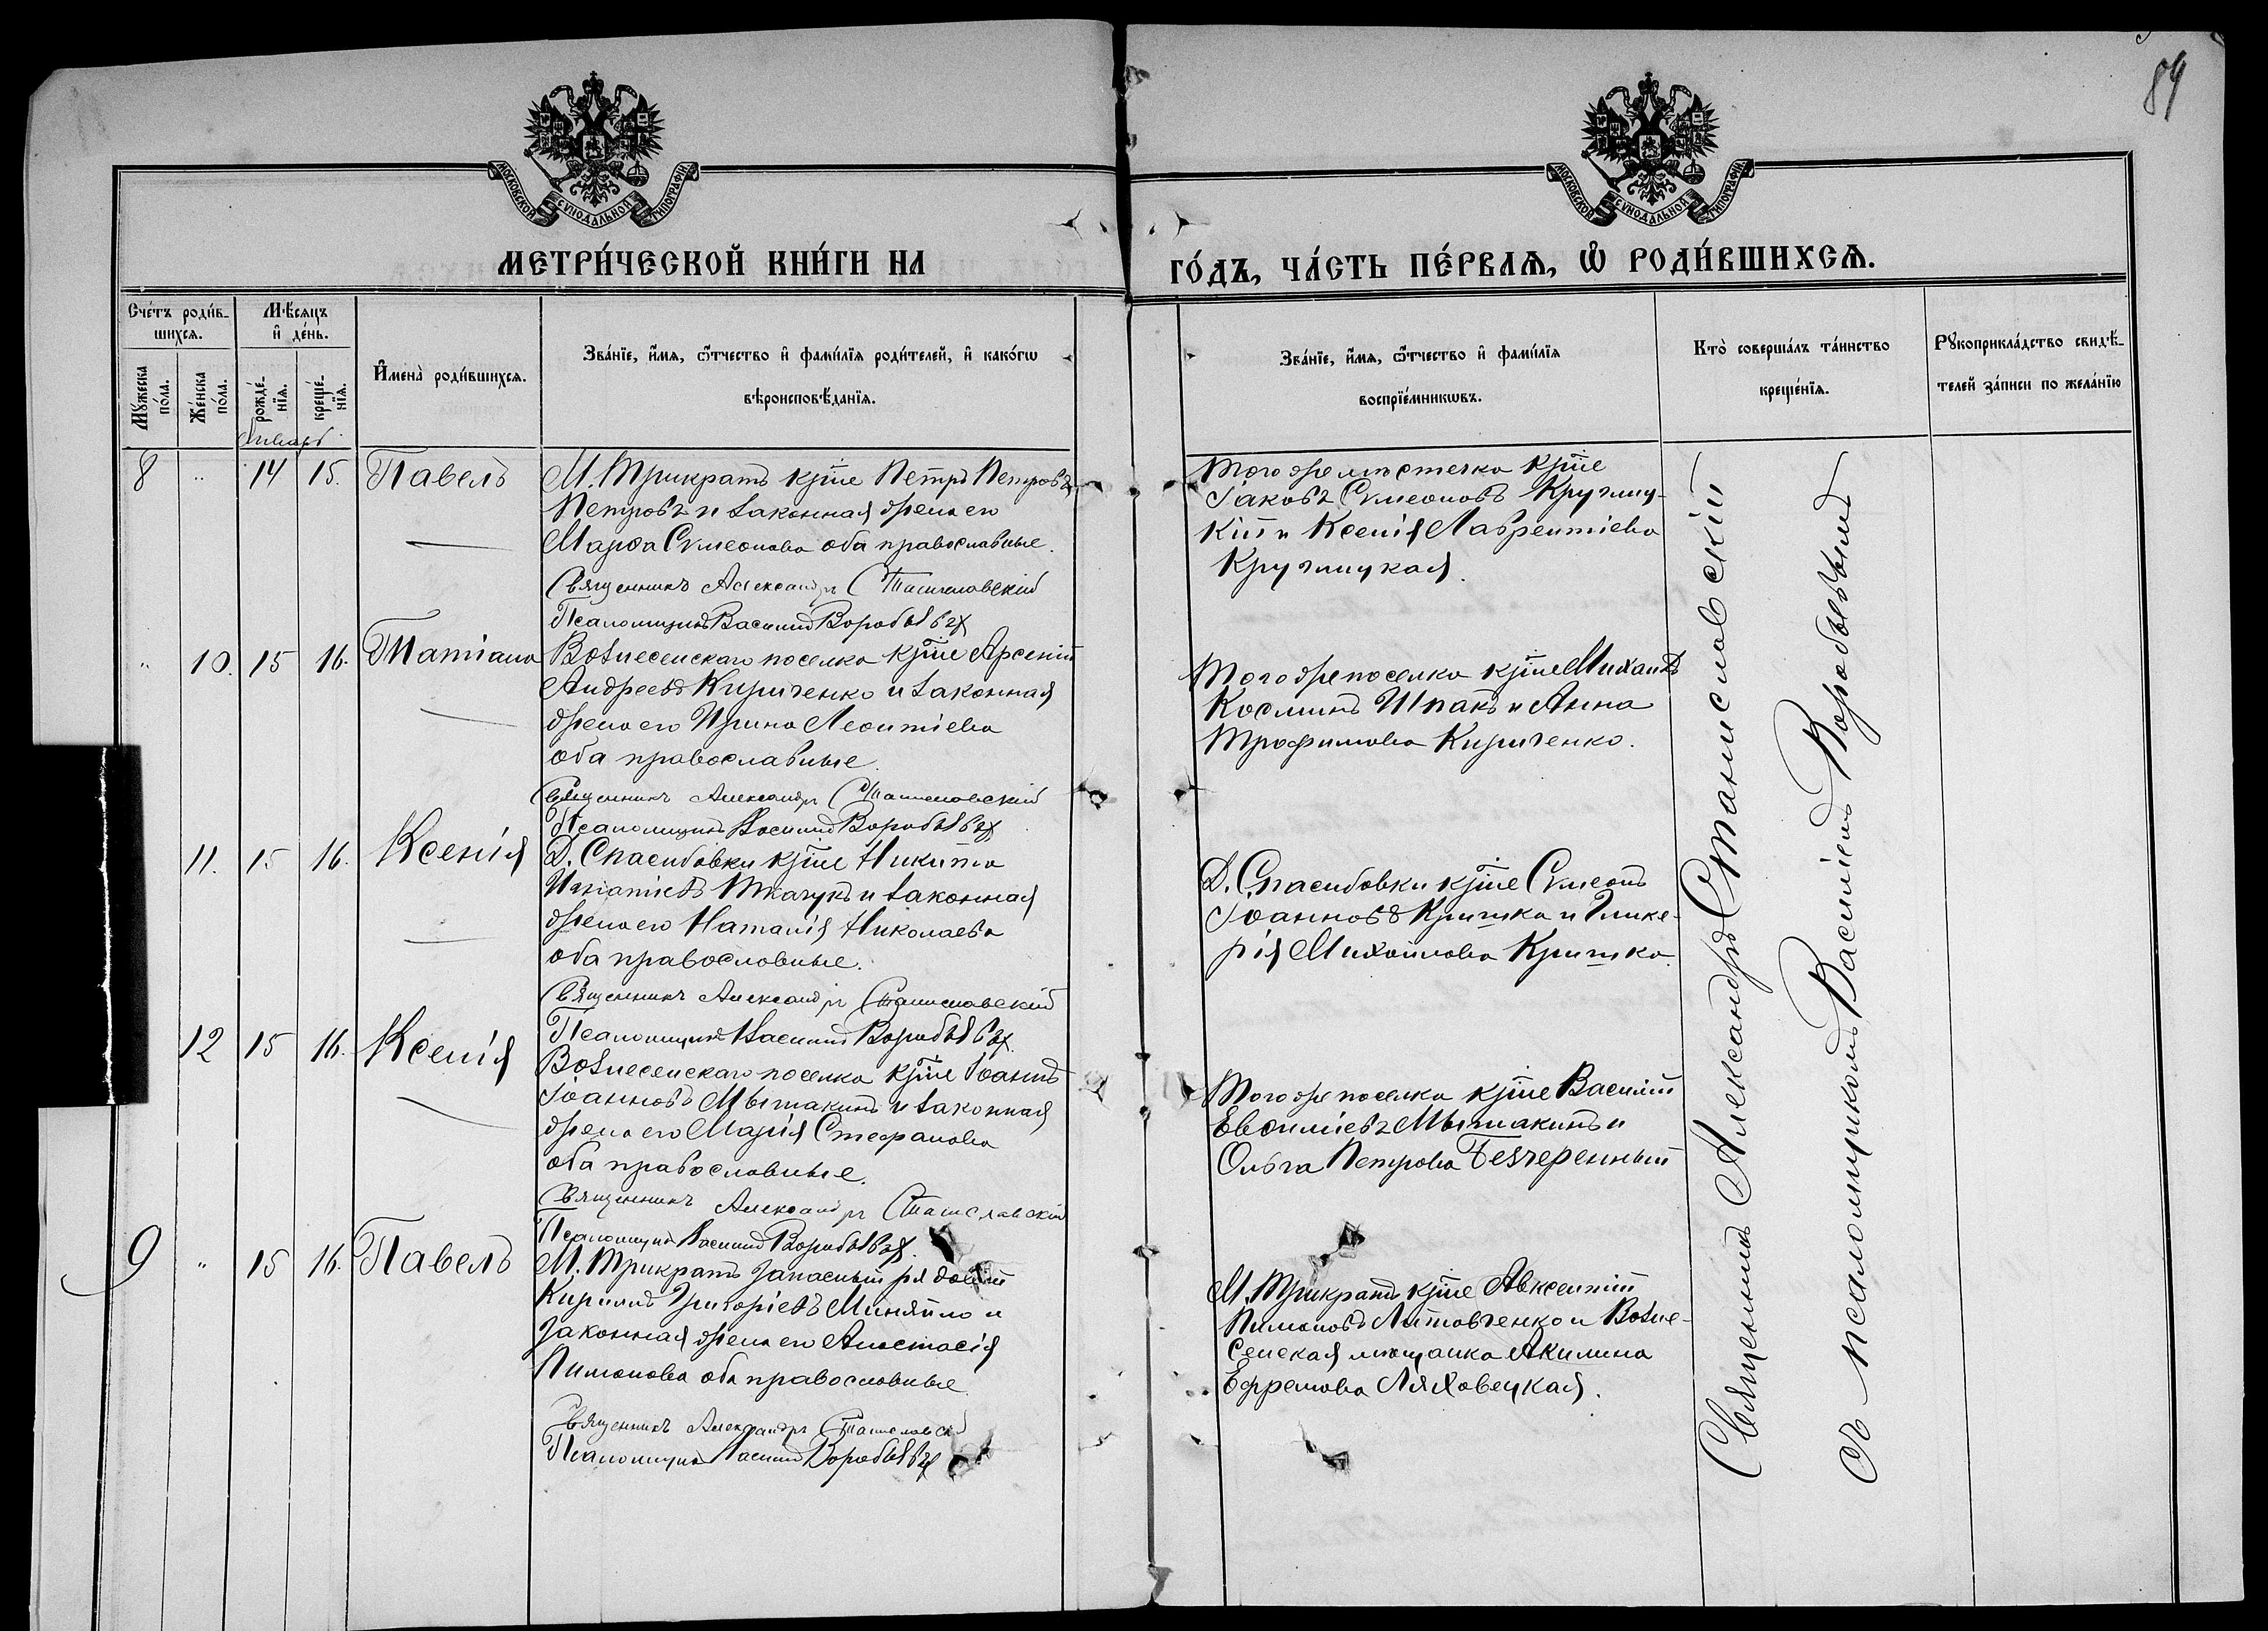 89
МОСКОВСКОЙ СѴНОДАЛЬНОЙ ТИПОГРАФІИ.
МОСКОВСКОЙ СѴНОДАЛЬНОЙ ТИПОГРАФІИ.
МЕТРИ́ЧЕСКОЙ КНИ́ГИ НА
ГО́ДЪ, ЧА́СТЬ ПЕ́РВАѦ, Ѡ РОДИ́ВШИХСѦ.
Сче́тъ роди́в-
шихсѧ.
Мꙋжеска по́ла.
Же́нска по́ла.
Мѣ́сѧцъ
и҆ де́нь.
рожде́-
нїѧ.
креще́-
нїѧ.
И҆мена̀ роди́вшихсѧ.
Зва́нїе, и҆́мѧ, ѻ҆́тчество и҆ фами́лїѧ роди́телей, и҆ како́гѡ
вѣроисповѣ́данїѧ.
Зва́нїе, и҆́мѧ, ѻ҆́тчество и҆ фами́лїѧ
воспрїе́мникѡвъ.
Кто̀ соверша́лъ та́инство
креще́нїѧ.
Рꙋкоприкла́дство свидѣ́-
телей за́писи по жела́нїю
Январь
8 " 14 15. Павелъ
М. Трикратъ кр̃не Петръ Петровъ
Петровъ и законная жена его
Марѳа Сѵмеонова оба православные.
Священникъ Александръ Станиславскій
Псаломщикъ Василій Воробьевъ
Того же мѣстечка кр̃не
Іаковъ Сѵмеоновъ Круглиц-
кій и Ксенія Лаврентіева
Круглицкая.
" 10. 15 16. Татіана
Вознесенскаго поселка кр̃не Арсеній
Андреевъ Кириченко и законная
жена его Ирина Леонтіева
оба православные.
Священникъ Александръ Станиславскій
Псаломщикъ Василій Воробьевъ
Того же поселка кр̃не Михаилъ
Косминъ Шпакъ и Анна
Трофимова Кириченко.
11. 15 16. Ксенія
Д. Спасибовки кр̃не Никита
Игнатіевъ Ткачукъ и законная
жена его Наталія Николаева
оба православные.
Священникъ Александръ Станиславскій
Псаломщикъ Василій Воробьевъ
Д. Спасибовки кр̃не Сѵмеонъ
Іоанновъ Кришко и Глике-
рія Михайлова Кришко.
12 15 16. Ксенія
Вознесенскаго поселка кр̃не Іоаннъ
Іоанновъ Мытакинъ и законная
жена его Марія Стефанова
оба православные.
Священникъ Александръ Станиславскій
Псаломщикъ Василій Воробьевъ
Того же поселка кр̃не Василій
Евѳиміевъ Мытакинъ и
Ольга Петрова Безчеренный
9 " 15 16. Павелъ
М. Трикратъ запасный рядовой
Кириллъ Григоріевъ Миняйло и
законная жена его Анастасія
Пимонова оба православные
Священникъ Александръ Станиславскій
Псаломщикъ Василій Воробьевъ
М. Трикратъ кр̃не Авксентій
Пимоновъ Литовченко и Возне-
сенская мѣщанка Акилина
Ефремова Ляховецкая.
Священникъ Александръ Станиславскій
съ псаломщикомъ Василіемъ Воробьевымъ